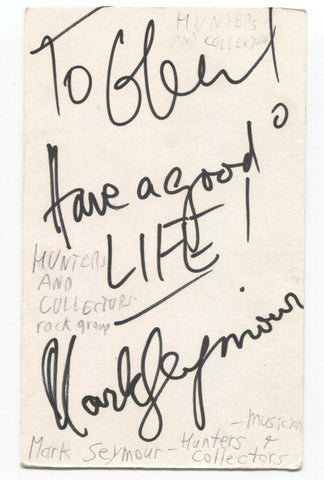 HUNTERS
AND COLLECTORS
To Glenn
Have a good
LIFE!
HUNTERS
AND
COLLECTORS-
rock group
Mark Seymour
- musician
Mark Seymour - Hunters &
Collectors